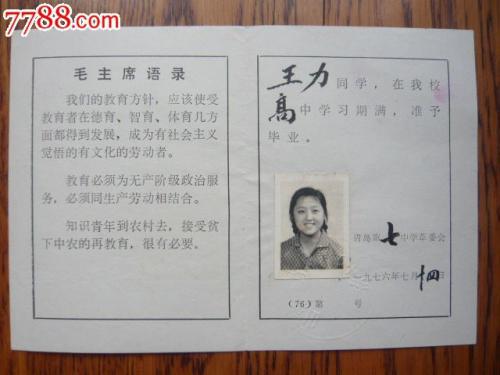 7788.com
毛主席语录
我们的教育方针，应该使受
教育者在德育、智育、体育几方
面都得到发展，成为有社会主义
觉悟的有文化的劳动者。
教育必须为无产阶级政治服
务，必须同生产劳动相结合。
知识青年到农村去，接受贫
下中农的再教育，很有必要。
王力同学，在我校
高中学习期满，准予
毕业。
青岛第七中学革委会
一九七六年七月十四日
(76)第 号